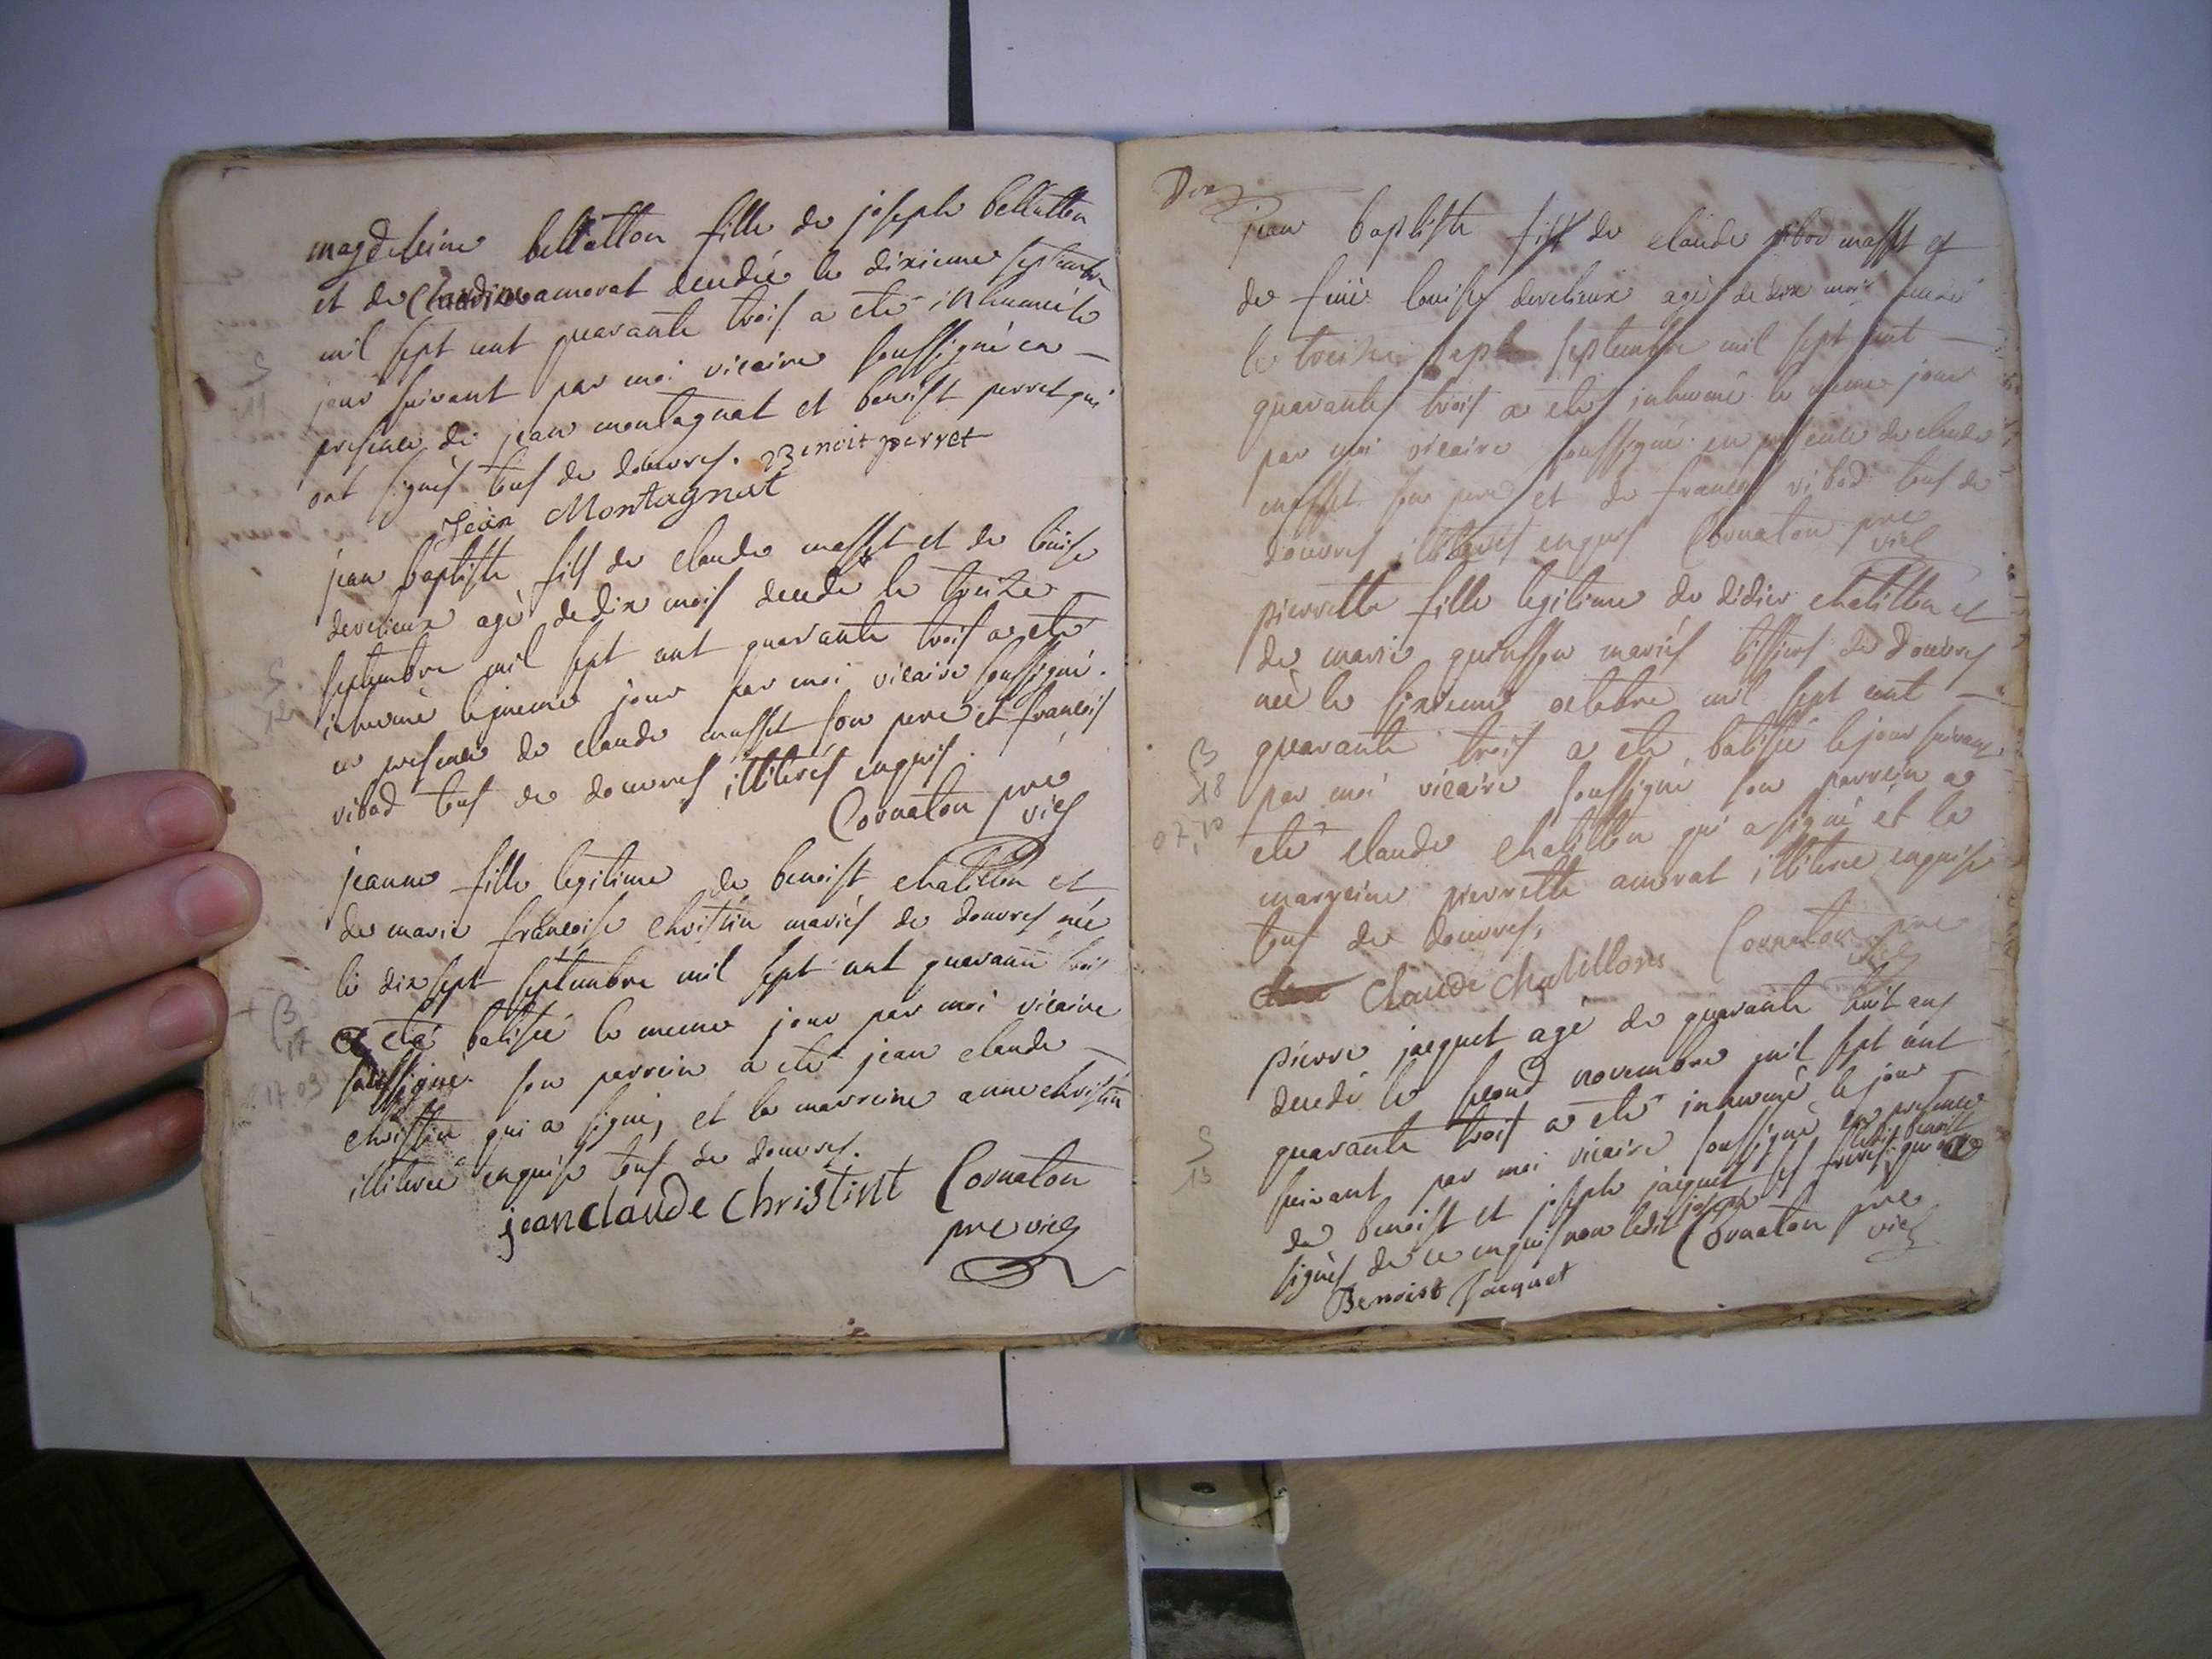 magdeleine bellatton fille de joseph bellatton
et de Claudine amorat decedée le dixieme septembre
mil sept cent quarante trois a eté inhumée le
jour suivant par moi vicaire soussigné en
presence de jean montagnat et benoist perret qui
ont signés tous de douvres. Benoit perret
Jean Montagnat
S
11
jean baptiste fils de claude masset et de louise
develieux agé de dix mois decedé le treize
septembre mil sept cent quarante trois a eté
inhumé le meme jour par moi vicaire soussigné
en presence de claude masset son pere et francois
vibod tous de douvres illiterés enquis.
Cornaton pre
vic
S
12
jeanne fille legitime de benoist chatillon et
de marie francoise christin mariés de douvres née
le dix sept septembre mil sept cent quarante trois
a eté batisée le meme jour par moi vicaire
soussigné son parrein a eté jean claude
christin qui a signé, et la marreine anne christin
illiterée enquise tous de douvres.
jean claude Christint Cornaton
pre vic
+ B
17
17.09
jean baptiste fils de claude masset et
de feüe louise develieux agé de dix mois decedé
le treize septembre mil sept cent
quarante trois a eté inhumé le meme jour
par moi vicaire soussigné en presence de claude
masset son pere et de francois vibod tous de
douvres illiterés enquis Cornaton pre
vic
pierrette fille legitime de didier chatillon et
de marie mariés tissiers de Douvres
née le sixieme octobre mil sept cent
quarante trois a eté batisée le jour suivant
par moi vicaire soussigné son parrein a
eté claude chatillon qui a signé et la
marreine pierrette amorat illiterée enquise
tous de douvres,
Claude Chatillons Cornaton pre
vic
B
18
07.10
pierre jacquet agé de quarante huit ans
decedé le second novembre mil sept cent
quarante trois a eté inhumé le jour
suivant par moi vicaire soussigné en presence
de benoist et joseph jacquet ses freres qui
ledit benoist
signés de ce enquis non ledit joseph Cornaton pre
vic
Benoist Jacquet
S
13